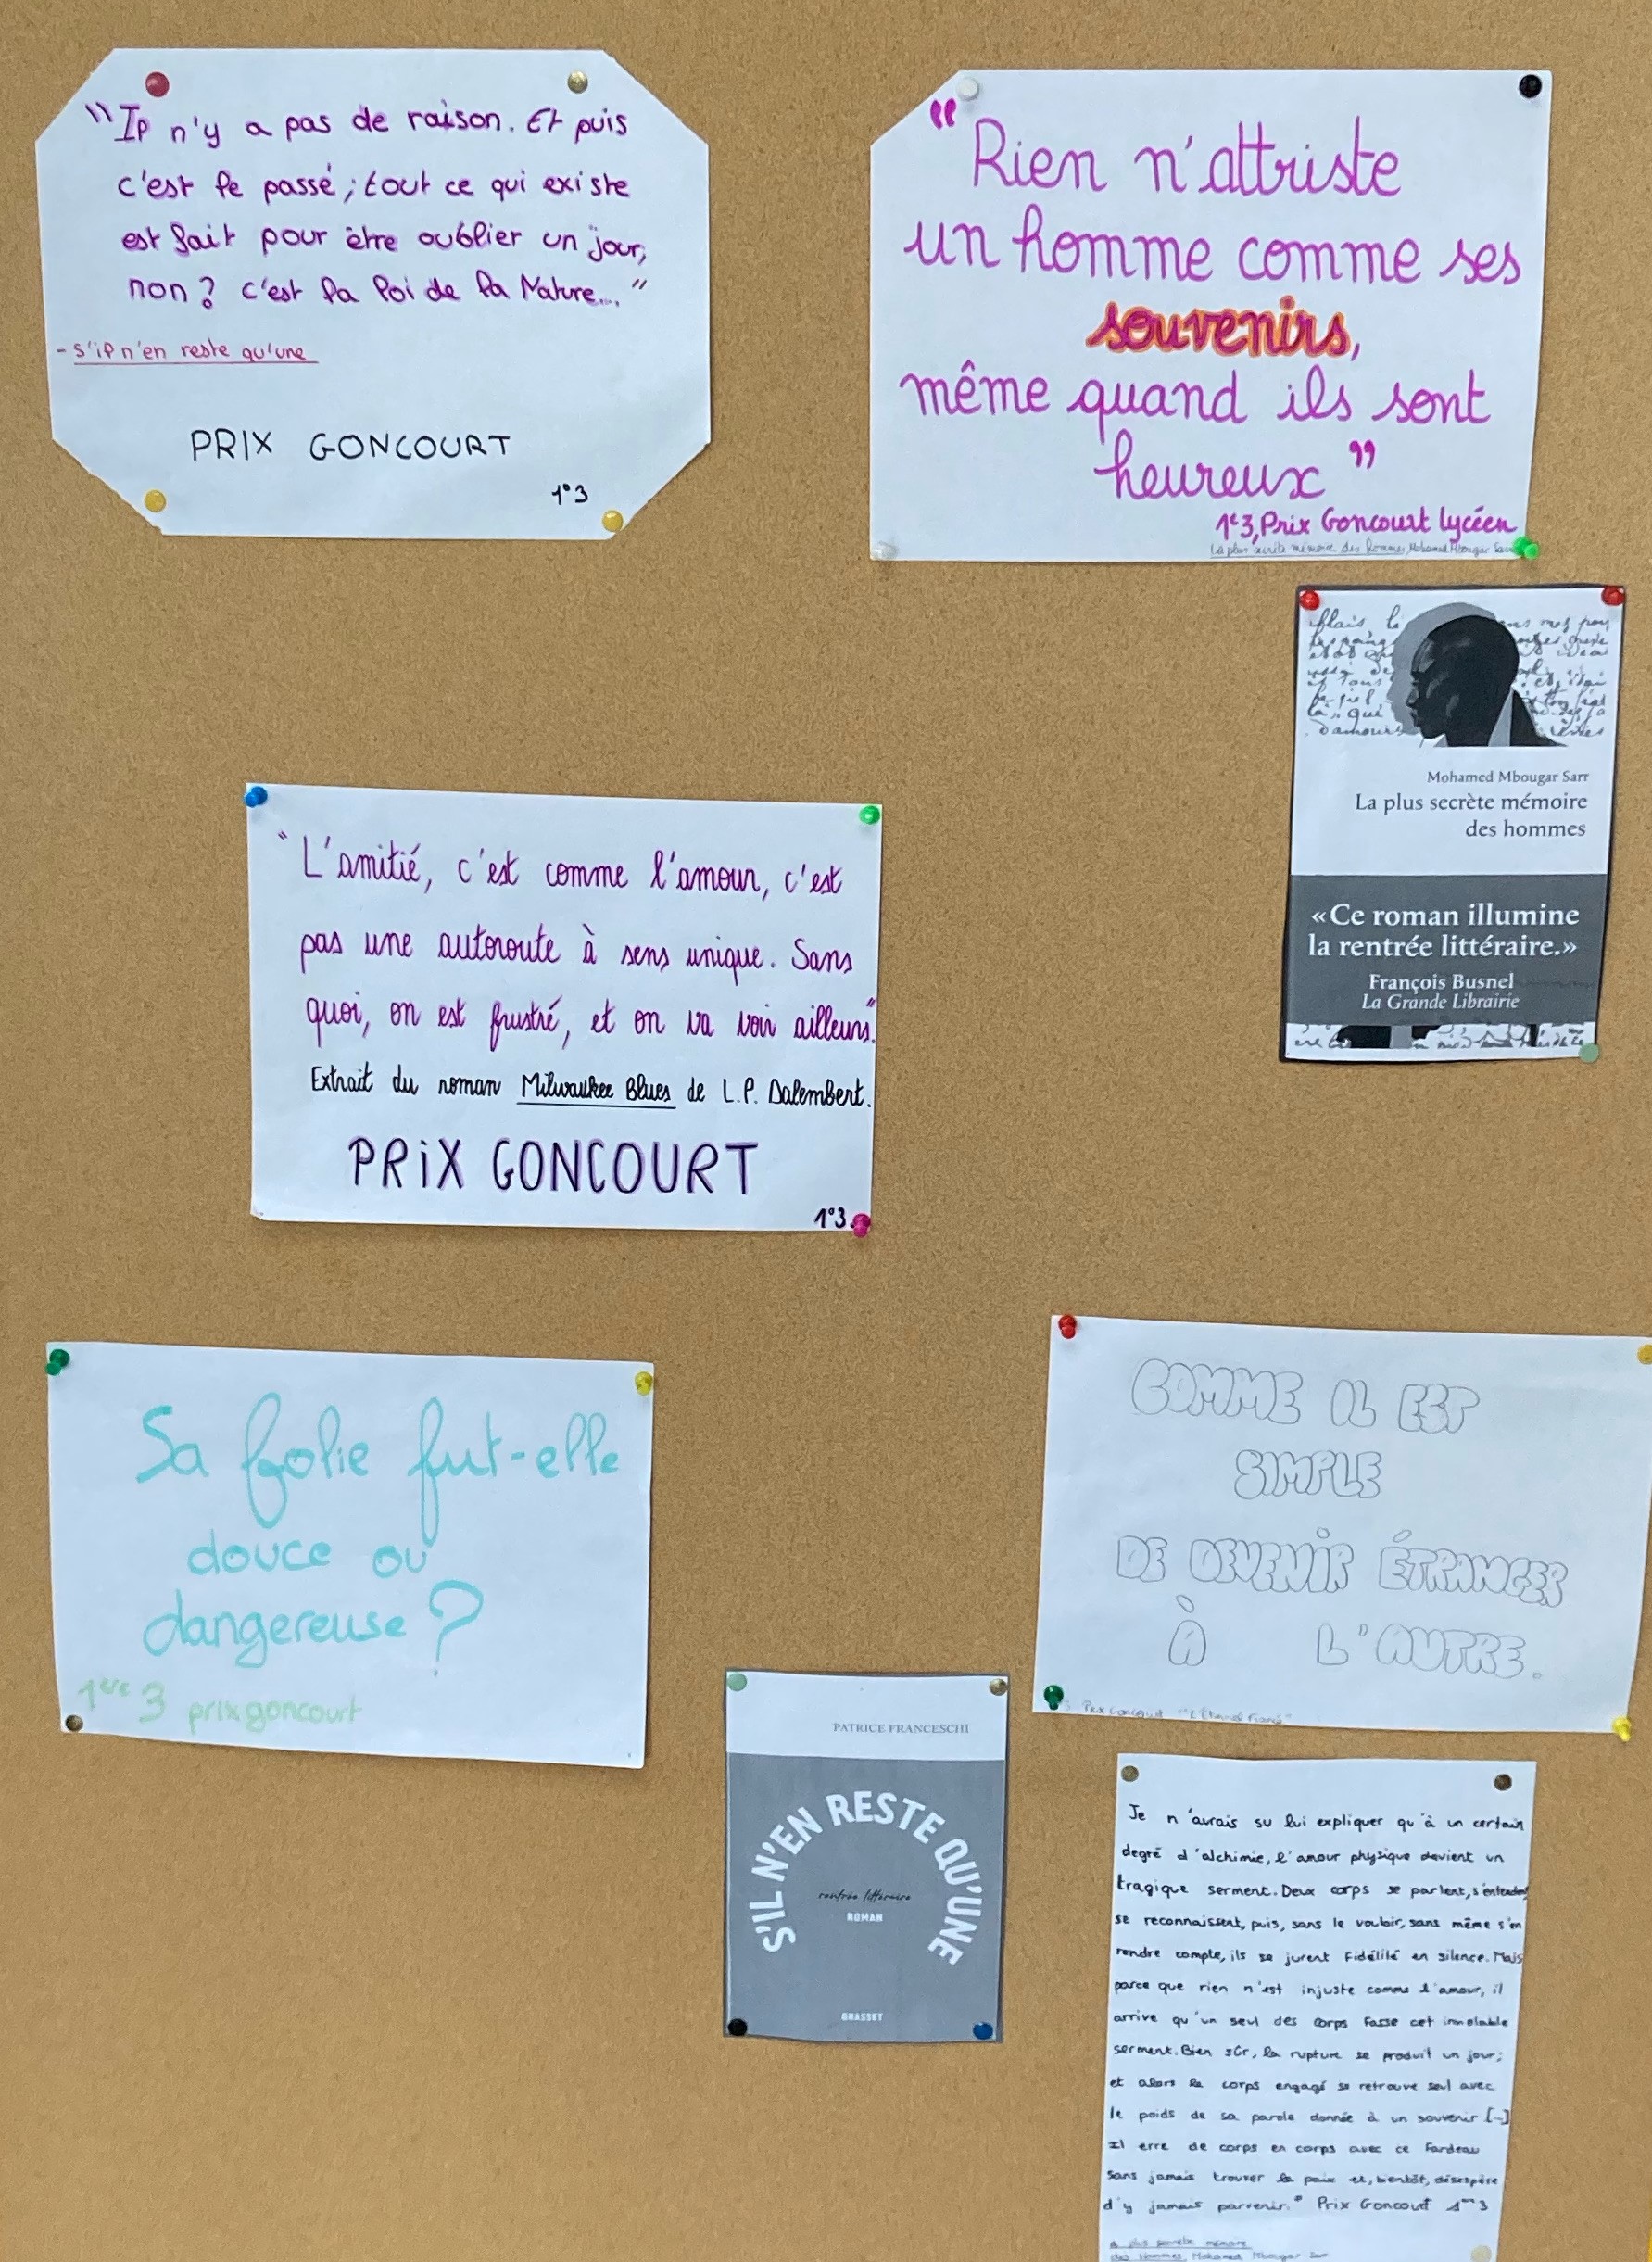 "Il n'y a pas de raison. Et puis
c'est le passé ; tout ce qui existe
est fait pour être oublier un jour,
non ? c'est la loi de la Nature... "
- s'il n'en reste qu'une
PRIX GONCOURT
1°3
"Rien n'attriste
un homme comme ses
souvenirs,
même quand ils sont
heureux"
1e3, Prix Goncourt lycéen
La plus secrète mémoire des hommes, Mohamed Mbougar Sarr
Mohamed Mbougar Sarr
La plus secrète mémoire
des hommes
«Ce roman illumine
la rentrée littéraire.»
François Busnel
La Grande Librairie
"L'amitié, c'est comme l'amour, c'est
pas une autoroute à sens unique. Sans
quoi, on est frustré, et on va voir ailleurs."
Extrait du roman Milwaukee Blues de L.P. Dalembert.
PRiX GONCOURT
1°3.
Sa folie fut-elle
douce ou
dangereuse ?
1ère 3 prix goncourt
COMME IL EST
SIMPLE
DE DEVENIR ÉTRANGER
À L'AUTRE.
3 Prix Goncourt "L'Éternel Fiancé"
PATRICE FRANCESCHI
S'IL N'EN RESTE QU'UNE
rentrée littéraire
ROMAN
GRASSET
Je n'aurais su lui expliquer qu'à un certain
degré d'alchimie, l'amour physique devient un
tragique serment. Deux corps se parlent, s'entendent
se reconnaissent, puis, sans le vouloir, sans même s'en
rendre compte, ils se jurent fidélité en silence. Mais
parce que rien n'est injuste comme l'amour, il
arrive qu'un seul des corps fasse cet
serment. Bien sûr, la rupture se produit un jour ;
et alors le corps engagé se retrouve seul avec
le poids de sa parole donnée à un souvenir [...]
Il erre de corps en corps avec ce fardeau
sans jamais trouver la paix et, bientôt, désespère
d'y jamais parvenir." Prix Goncourt 1ère 3
a plus secrète mémoire
des Hommes, Mohamed Mbougar Sarr